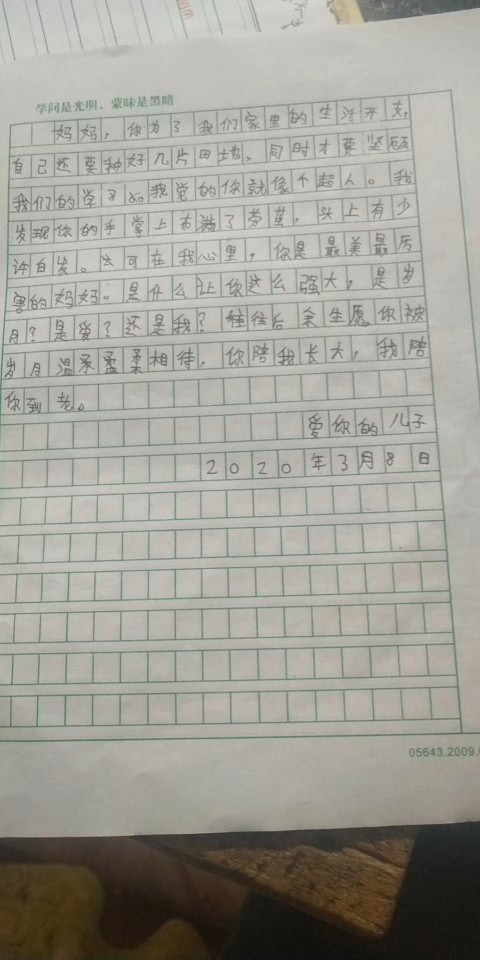 学问是光明、蒙昧是黑暗
妈妈，你为了我们家里的生活开支，
自己还要种好几片田地，同时才要坚顾
我们的学习，我觉的你就像个超人。我
发现你的手掌上布满了劳茧，头上有少
许白发。可在我心里，你是最美最厉
害的妈妈。是什么让你这么强大，是岁
月？是爱？还是我？往后余生愿你被
岁月温柔相待，你陪我长大，我陪
你到老。
爱你的儿子
2020年3月8日
05643.2009.